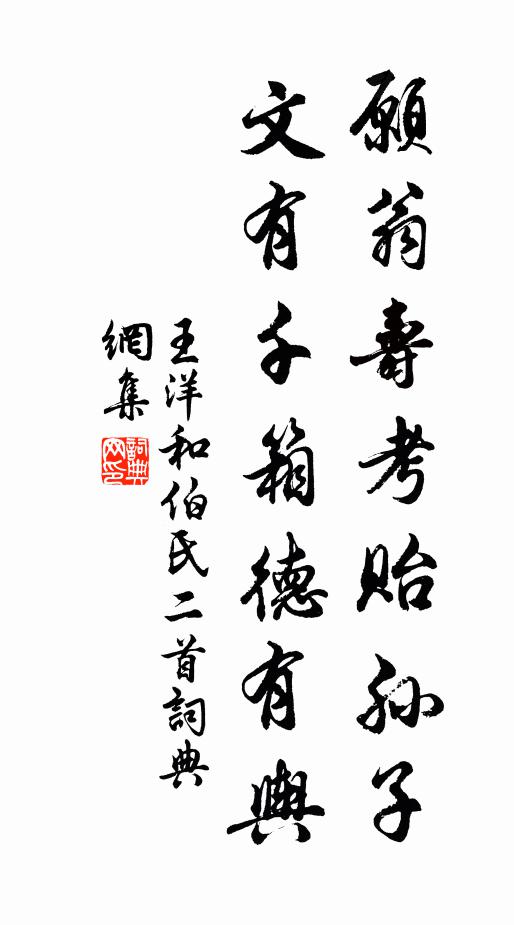 願翁壽考貽孫子
文有千箱德有輿
王洋和伯氏二首詞典
網集
詞典網印